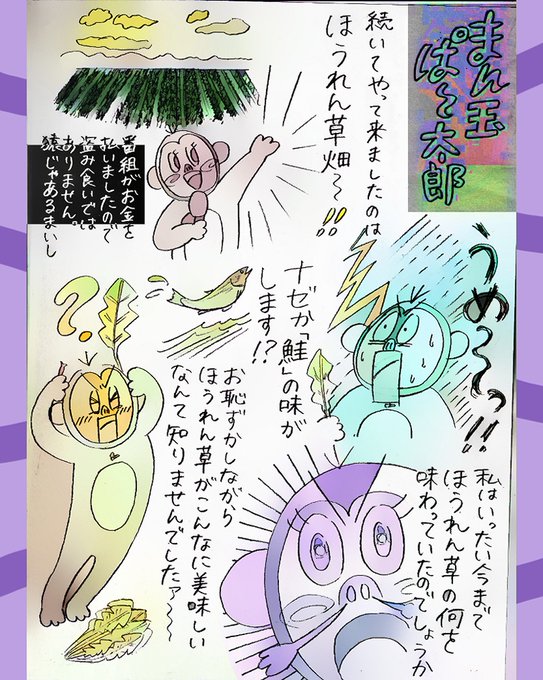 まん玉
ぱく太郎
続いてやって来ましたのは
ほうれん草畑〜!!
番組がお金を
払いましたので
盗み食いでは
ありません。
猿じゃあるまいし
うめ〜〜っ!!
ナゼか「鮭」の味が
します!?
?!
お恥ずかしながら
ほうれん草がこんなに美味しい
なんて知りませんでしたァ〜〜
私はいったい今まで
ほうれん草の何を
味わっていたのでしょうか